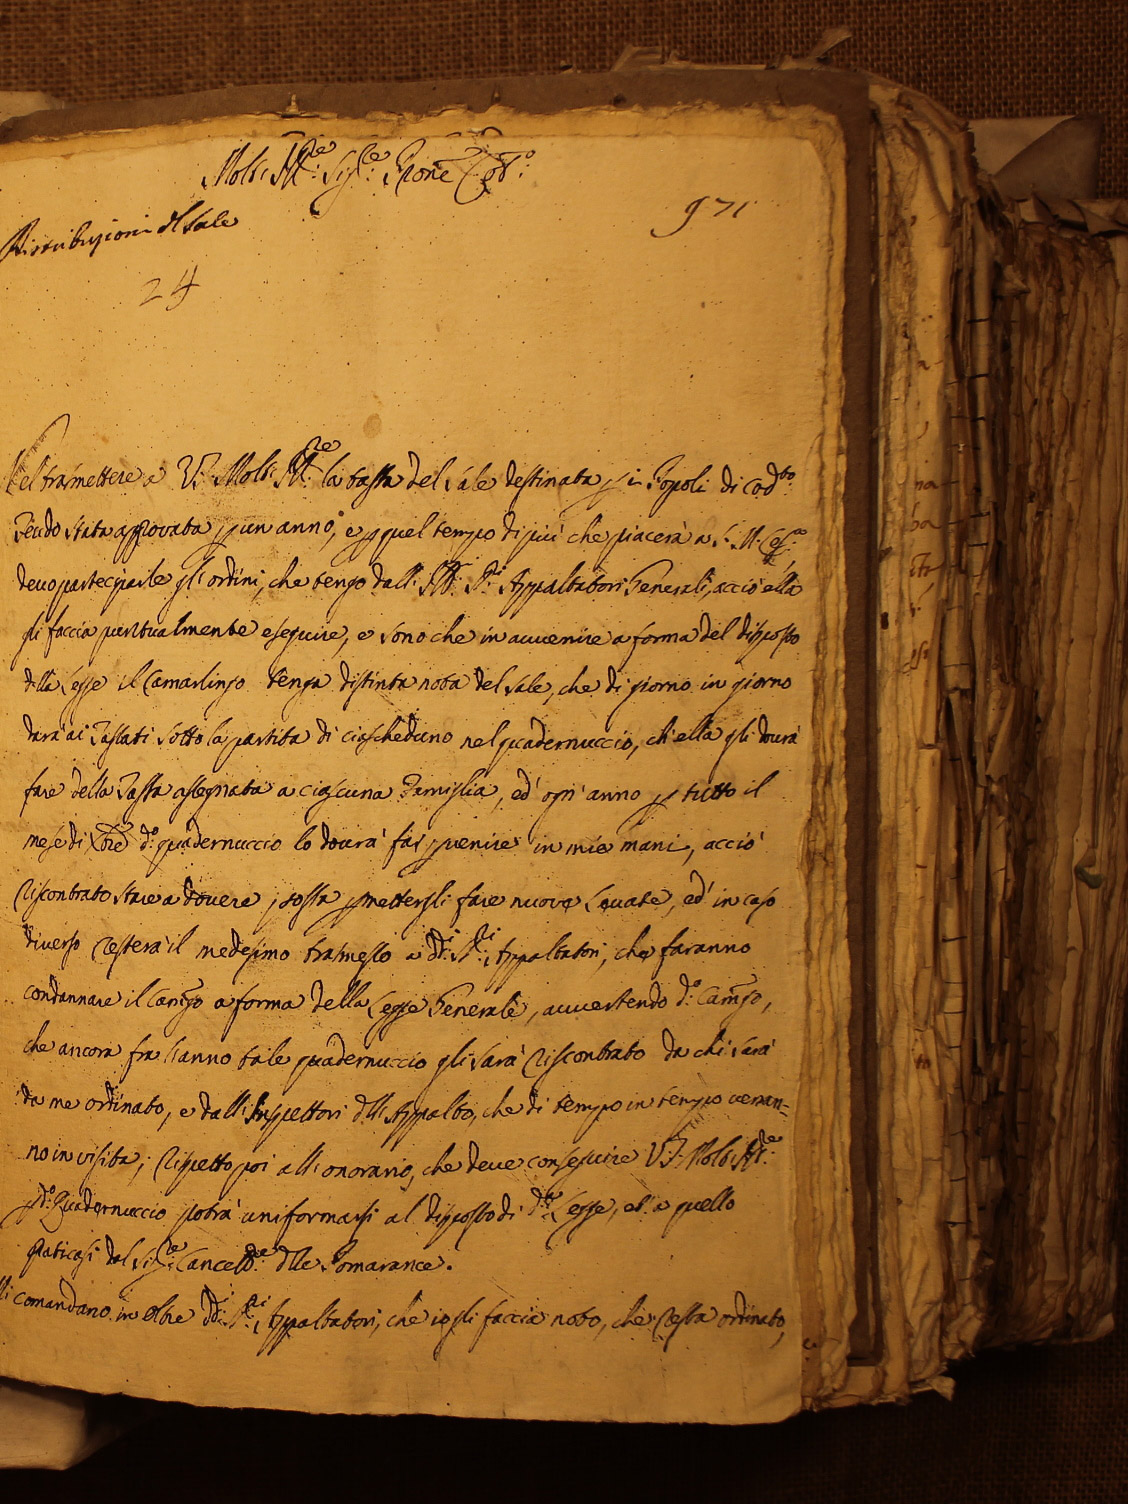 Molt' Ill:re Sig:re Prone Col:mo
971
Distribuzioni del Sale
24
Nel trasmettere a V.S. Molt' Ill:re la tassa del Sale destinata p i Popoli di cod:to
Feudo stata approvata p un anno, e p quel tempo di più che piacerà a S. M. Ces:a
devo parteciparle gl'ordini, che tengo dall' Ill: SS:ri Appaltatori Generali, acciò ella
gli faccia puntualmente eseguire, e sono che in avvenire a forma del disposto
della Legge il Camarlingo tenga distinta nota del Sale, che di giorno in giorno
darà ai Tassati sotto la partita di ciascheduno nel quadernuccio, ch'ella gli dovrà
fare della Tassa assegnata a ciascuna Famiglia, ed' ogn' anno p tutto il
mese di Xbre d:o quadernuccio lo dovrà far pvenire in mie mani, acciò
riscontrato stare a dovere, possa pmettergli fare nuove Levate, ed' in caso
diverso resterà il medesimo trasmesso a d:ti SS:ri Appaltatori, che faranno
condannare il Camgo a forma della Legge Generale, avvertendo d:o Camgo,
che ancora fra l'anno tale quadernuccio gli sarà riscontrato da chi sarà
da me ordinato, e dall' Inspettori dell' Appalto, che di tempo in tempo verran=
no in visita; Rispetto poi all' onorario, che deve conseguire V.S. Molt' Ill:re
p d:o Quadernuccio potrà uniformarsi al disposto di d:ta Legge, et' a quello
praticasi dal Sig:re Cancell:re delle Pomarance.
Mi comandano in oltre d:ti SS:ri Appaltatori, che io gli faccia noto, che resta ordinato,